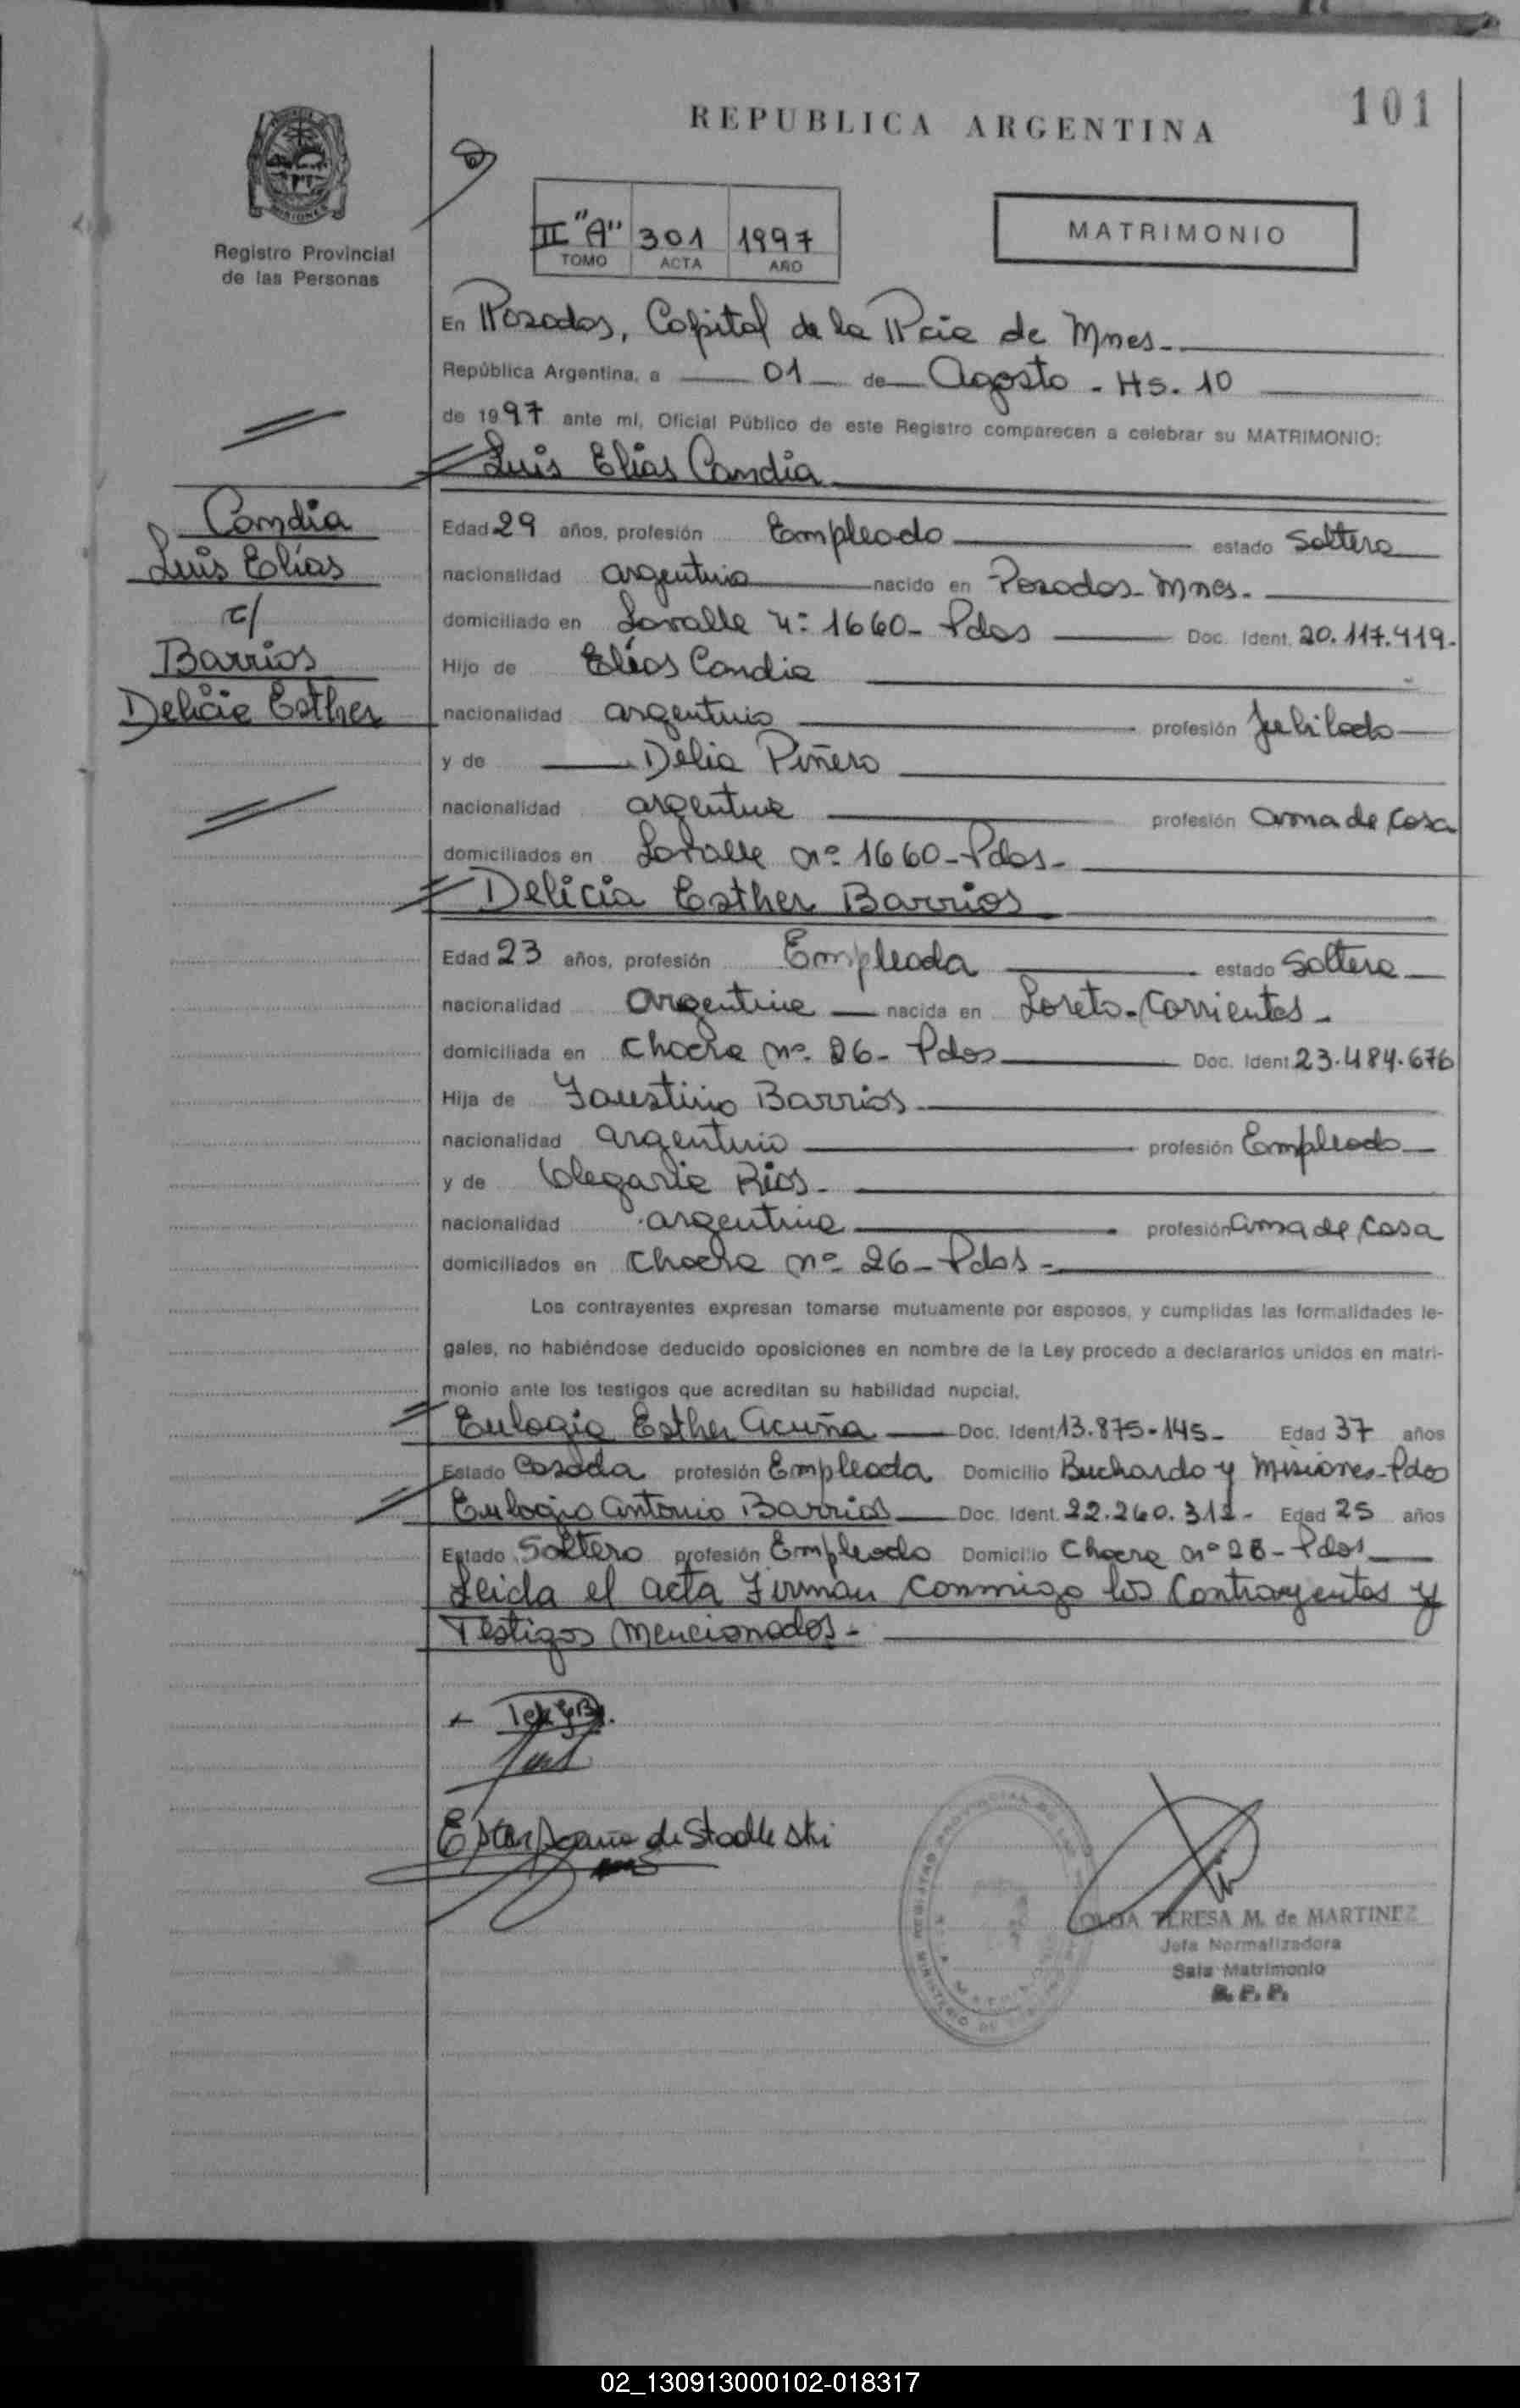 101
REPUBLICA ARGENTINA
MISIONES
Registro Provincial
de las Personas
II "A" 301 1997
TOMO ACTA AÑO
MATRIMONIO
En Posadas, Capital de la Pcia de Mnes.
República Argentina, a 01 de Agosto - Hs. 10
de 1997 ante mí, Oficial Público de este Registro comparecen a celebrar su MATRIMONIO:
Luis Elias Candia
Candia
Luis Elías
c/
Barrios
Delicia Esther
Edad 29 años, profesión Empleado estado Soltero
nacionalidad argentino nacido en Posadas - Mnes.
domiciliado en Lavalle nº 1660 - Pdas Doc. Ident. 20.117.919.
Hijo de Elías Candia
nacionalidad argentino profesión Jubilado
y de Delia Piñero
nacionalidad argentina profesión ama de casa
domiciliados en Lavalle nº 1660 - Pdas -
Delicia Esther Barrios
Edad 23 años, profesión Empleada estado Soltera
nacionalidad Argentina nacida en Loreto - Corrientes -
domiciliada en Chacra nº 26 - Pdas Doc. Ident. 23.484.676
Hija de Faustino Barrios
nacionalidad argentino profesión Empleado
y de Olegaria Rios -
nacionalidad argentina profesión ama de casa
domiciliados en Chacra nº 26 - Pdas -
Los contrayentes expresan tomarse mutuamente por esposos, y cumplidas las formalidades le-
gales, no habiéndose deducido oposiciones en nombre de la Ley procedo a declararlos unidos en matri-
monio ante los testigos que acreditan su habilidad nupcial.
Eulogia Esther Acuña Doc. Ident. 13.875.145 - Edad 37 años
Estado Casada profesión Empleada Domicilio Buchardo y Misiones - Pdas
Eulogio Antonio Barrios Doc. Ident. 22.260.312 - Edad 25 años
Estado Soltero profesión Empleado Domicilio Chacra nº 28 - Pdas
Leida el acta Firman conmigo los Contrayentes y
Testigos mencionados -
de Stadleski
OLGA TERESA M. de MARTINEZ
Jefa Normalizadora
Sala Matrimonio
R. P. P.
02_130913000102-018317